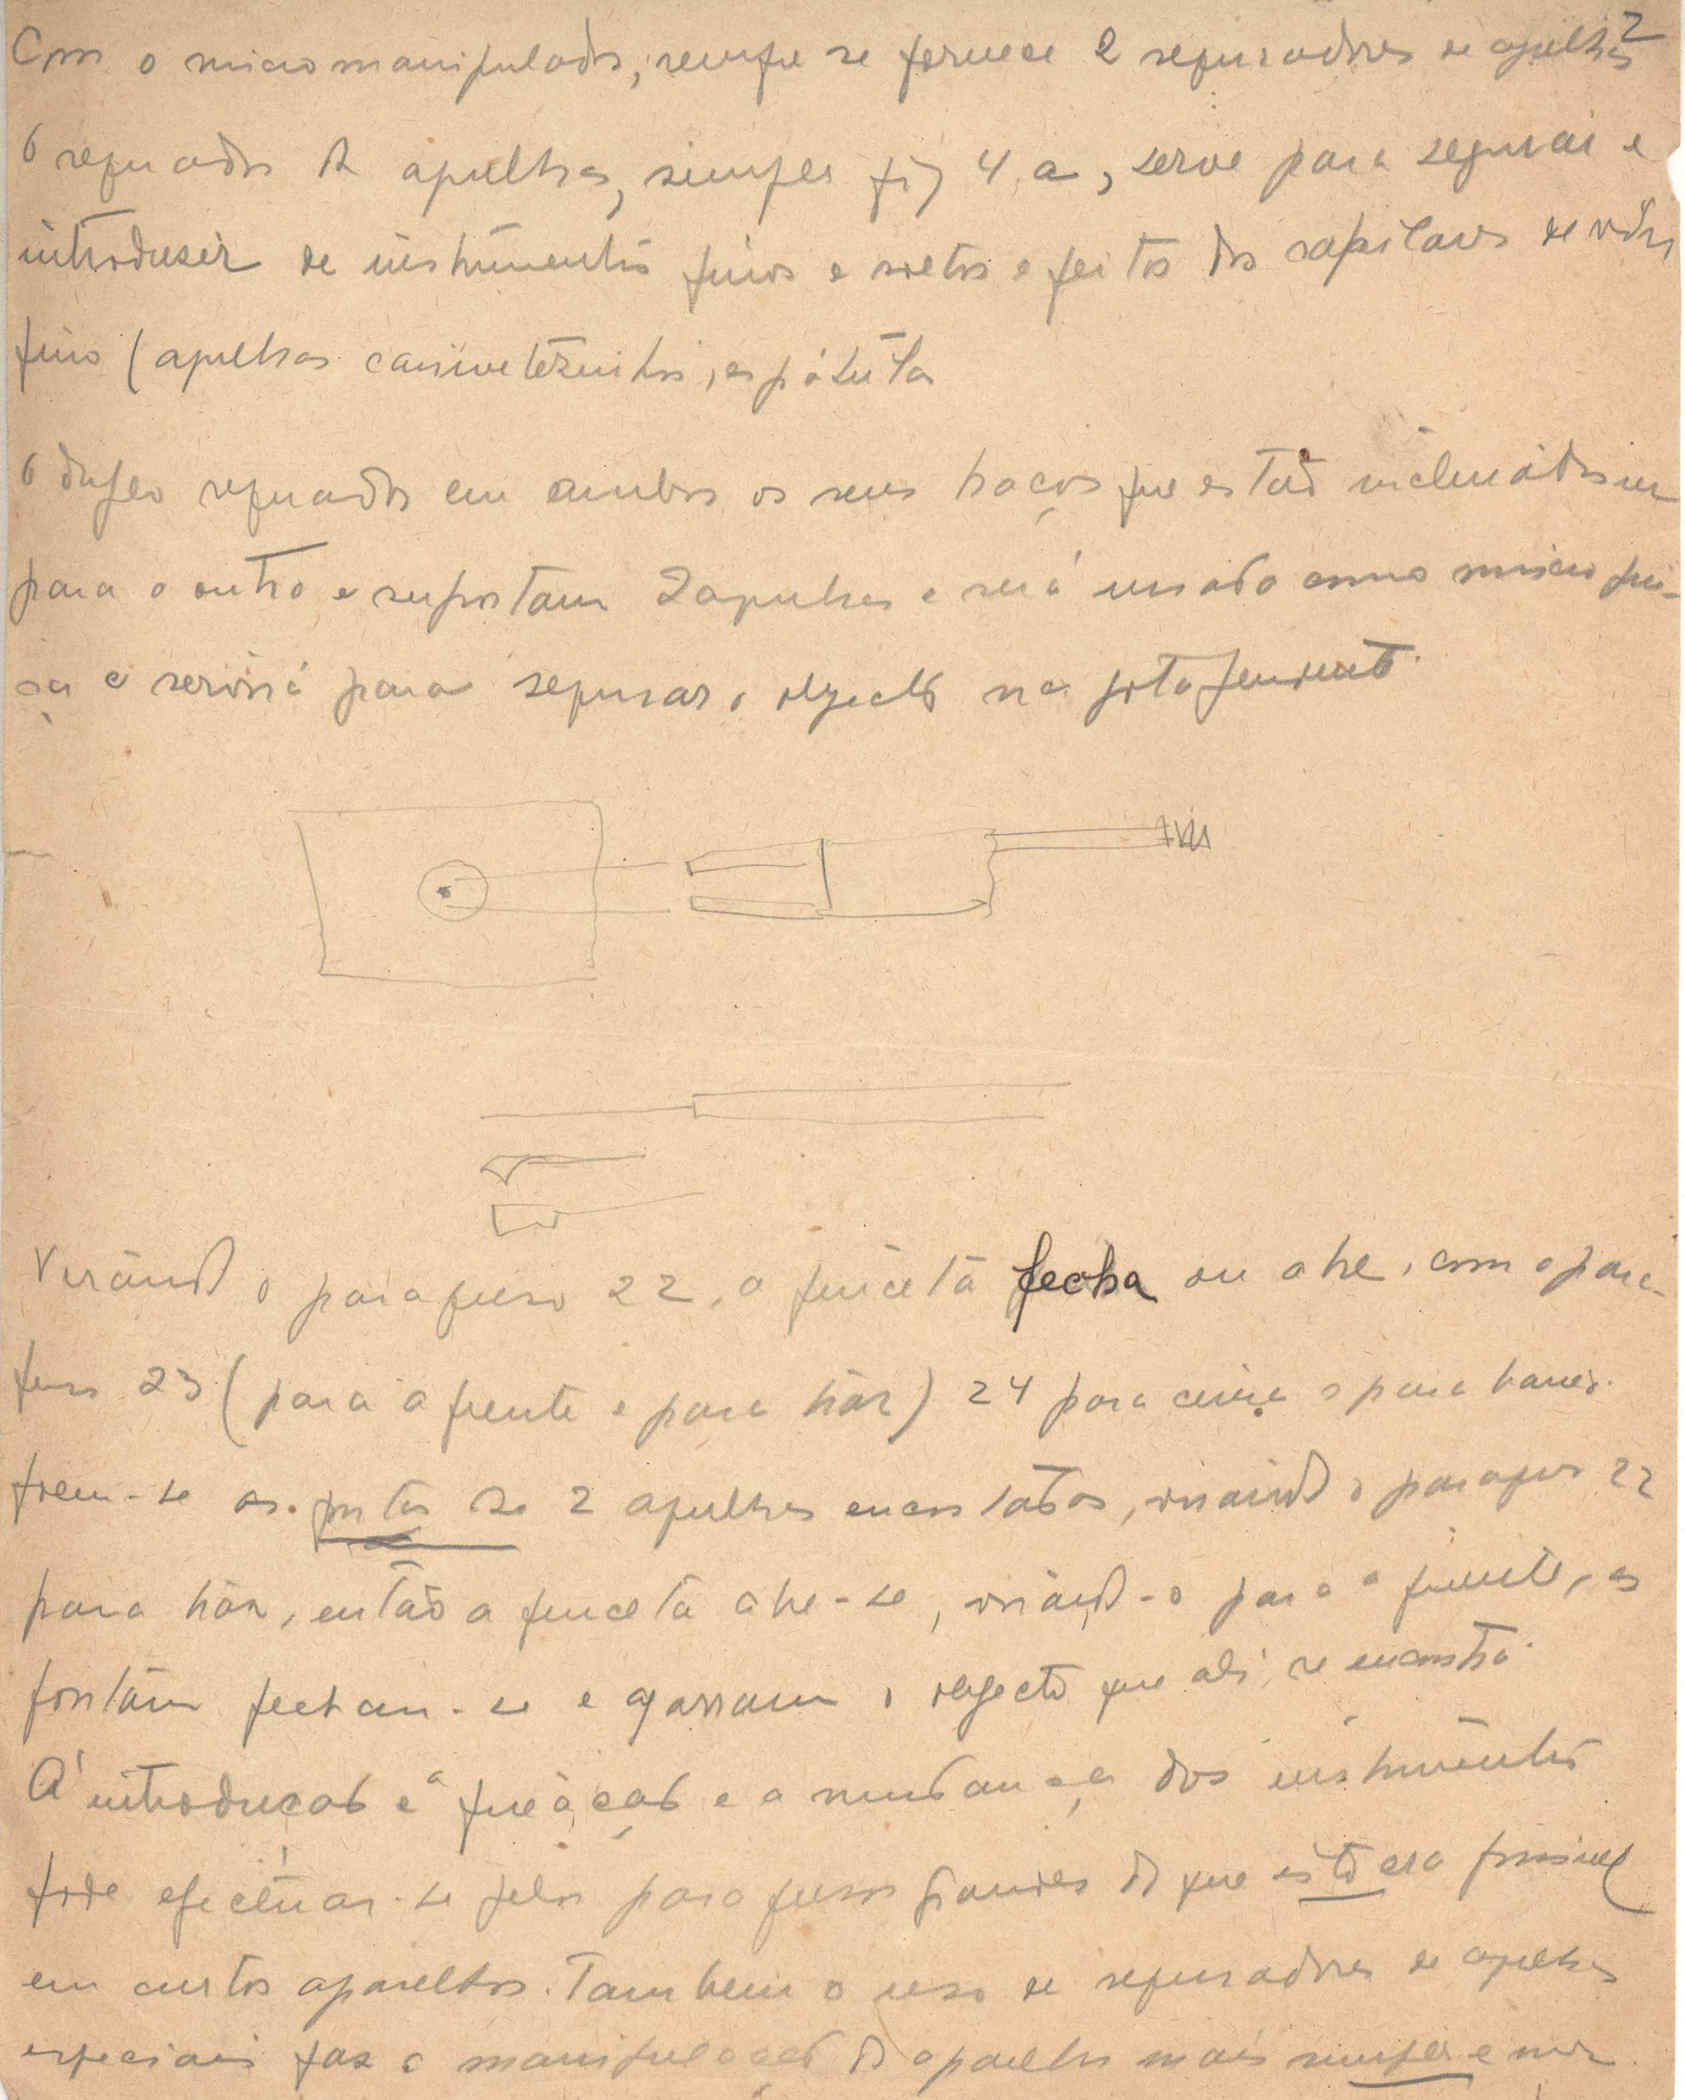 2
Com o micromanipulador, sempre se fornece 2 seguradores de agulhas
O segurador de agulhas, simples fig 4 a, serve para segurar e
introdusir de instrumentos finos e retos e feitos dos capilares de vidro
fino (agulhas canivetezinhos, espátula
O duplo segurador em ambos os seus braços que estão inclinados um
para o outro e suportam 2 agulhas e será usado como micro pin-
ça e servirá para segurar o objecto na gota pendente.
Virando o parafuso 22, a pinceta fecha ou abre, com o para-
fuso 23 (para a frente e para trás) 24 para cima e para baixo.
Põem-se as pontas de 2 agulhas encostadas, virando o parafuso 22
para trás, então a pinceta abre-se, virando-o para a frente, as
pontas fecham-se e agarram o objecto que ali se encontra.
A introdução e a fixação e a mudança dos instrumentos
pode efectuar-se pelos parafusos grandes do que isto era possivel
em outros aparelhos. Tambem o uso de seguradores de agulhas
especiais faz a manipulação do aparelho mais simples e